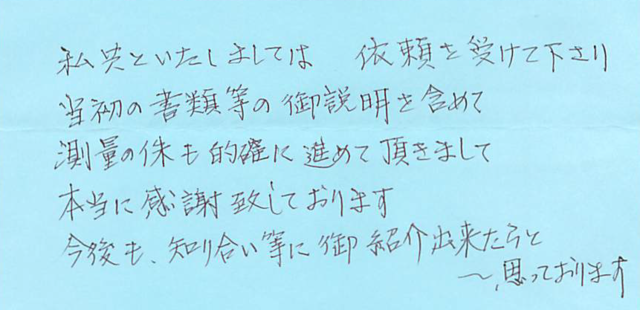 私共といたしましては 依頼を受けて下さり
当初の書類等の御説明を含めて
測量の侏も的確に進めて頂きまして
本当に感謝致しております
今後も、知り合い等に御紹介出来たらと
〜、思っております